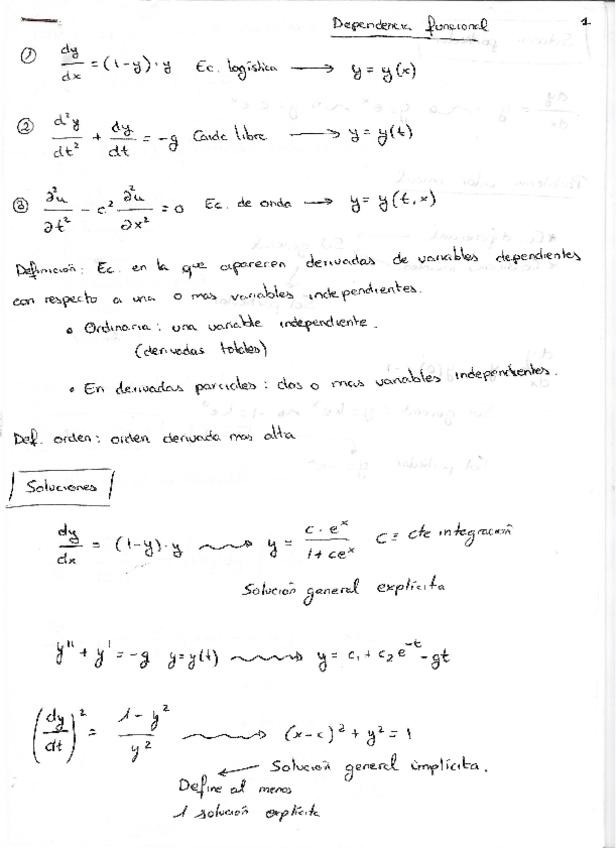 Dependencia funcional 1
① dy/dx = (1-y)·y Ec. logística → y = y(x)
② d²y/dt² + dy/dt = -g Caída libre → y = y(t)
③ ∂²u/∂t² - c² ∂²u/∂x² = 0 Ec. de onda → y = y(t,x)
Definición: Ec. en la que aparecen derivadas de variables dependientes
con respecto a una o mas variables independientes.
• Ordinaria: una variable independiente.
(derivadas totales)
• En derivadas parciales: dos o mas variables independientes.
Def. orden: orden derivada mas alta
Soluciones
dy/dx = (1-y)·y ⟿ y = c·eˣ/1+ceˣ C ≡ cte integración
Solución general explícita
y'' + y' = -g y=y(t) ⟿ y = c₁ + c₂e⁻ᵗ - gt
(dy/dt)² = 1-y²/y² ⟿ (x-c)² + y² = 1
← Solución general implícita.
Define al menos
1 solución explícita